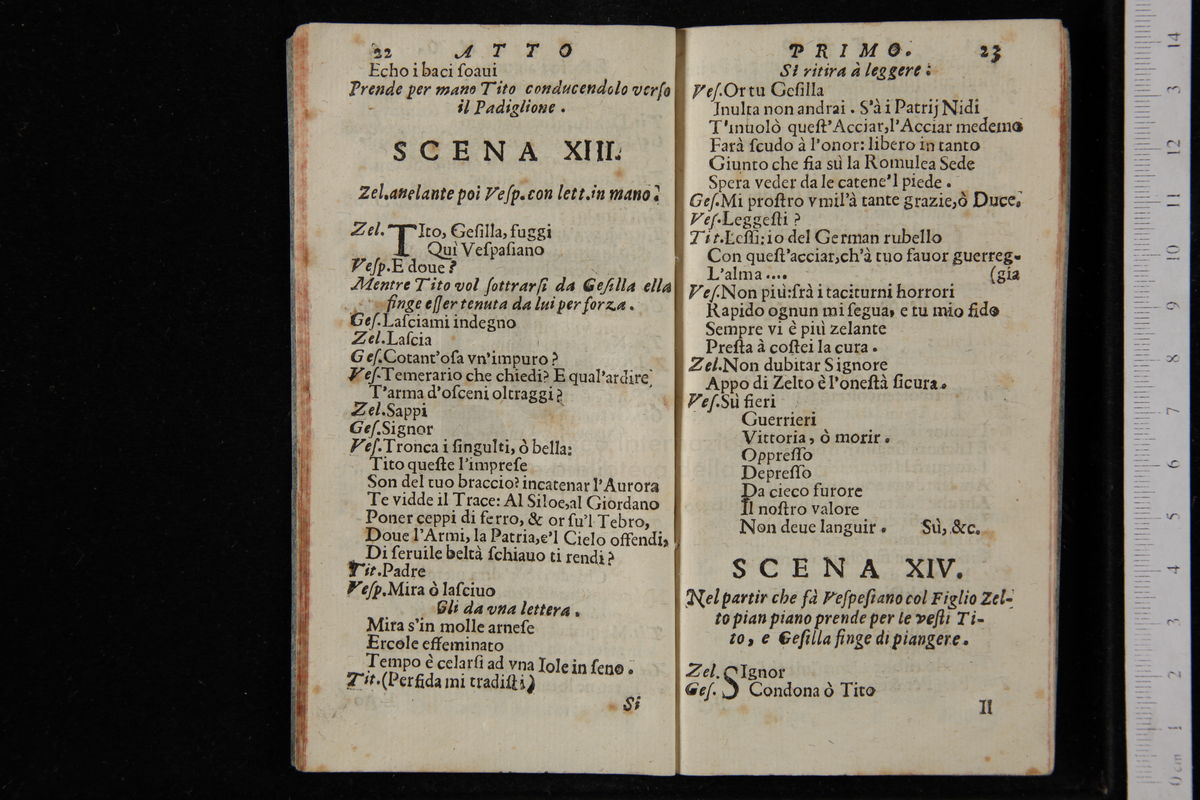 22 ATTO
Echo i baci ſoaui
Prende per mano Tito conducendolo verſo
il Padiglione.
SCENA XIII.
Zel. anelante poi Veſp. con lett. in mano.
Zel. TIto, Geſilla, fuggi
Quì Veſpaſiano
Veſp. E doue?
Mentre Tito vol ſottrarſi da Geſilla ella
finge eſſer tenuta da lui per forza.
Geſ. Laſciami indegno
Zel. Laſcia
Geſ. Cotant'oſa vn'impuro?
Veſ. Temerario che chiedi? E qual'ardire
T'arma d'oſceni oltraggi?
Zel. Sappi
Geſ. Signor
Veſ. Tronca i ſingulti, ò bella:
Tito queſte l'impreſe
Son del tuo braccio? incatenar l'Aurora
Te vidde il Trace: Al Siloe, al Giordano
Poner ceppi di ferro, & or ſu'l Tebro,
Doue l'Armi, la Patria, e'l Cielo offendi,
Di ſeruile beltà ſchiauo ti rendi?
Tit. Padre
Veſp. Mira ò laſciuo
Gli da vna lettera.
Mira s'in molle arneſe
Ercole effeminato
Tempo è celarſi ad vna Iole in ſeno.
Tit. (Perfida mi tradiſti)
Si
PRIMO. 23
Si ritira à leggere:
Veſ. Or tu Geſilla
Inulta non andrai. S'à i Patrij Nidi
T'inuolò queſt'Acciar, l'Acciar medemo
Farà ſcudo à l'onor: libero in tanto
Giunto che ſia sù la Romulea Sede
Spera veder da le catene'l piede.
Geſ. Mi proſtro vmil'à tante grazie, ò Duce.
Veſ. Leggeſti?
Tit. Leſſi: io del German rubello
Con queſt'acciar, ch'à tuo fauor guerreg-
L'alma .... (gia
Veſ. Non più: frà i taciturni horrori
Rapido ognun mi ſegua, e tu mio fido
Sempre vi è più zelante
Preſta à coſtei la cura.
Zel. Non dubitar Signore
Appo di Zelto è l'oneſtà ſicura.
Veſ. Sù fieri
Guerrieri
Vittoria, ò morir.
Oppreſſo
Depreſſo
Da cieco furore
Il noſtro valore
Non deue languir. Sù, &c.
SCENA XIV.
Nel partir che fà Veſpeſiano col Figlio Zel-
to pian piano prende per le veſti Ti-
to, e Geſilla finge di piangere.
Zel. SIgnor
Geſ. Condona ò Tito
Il